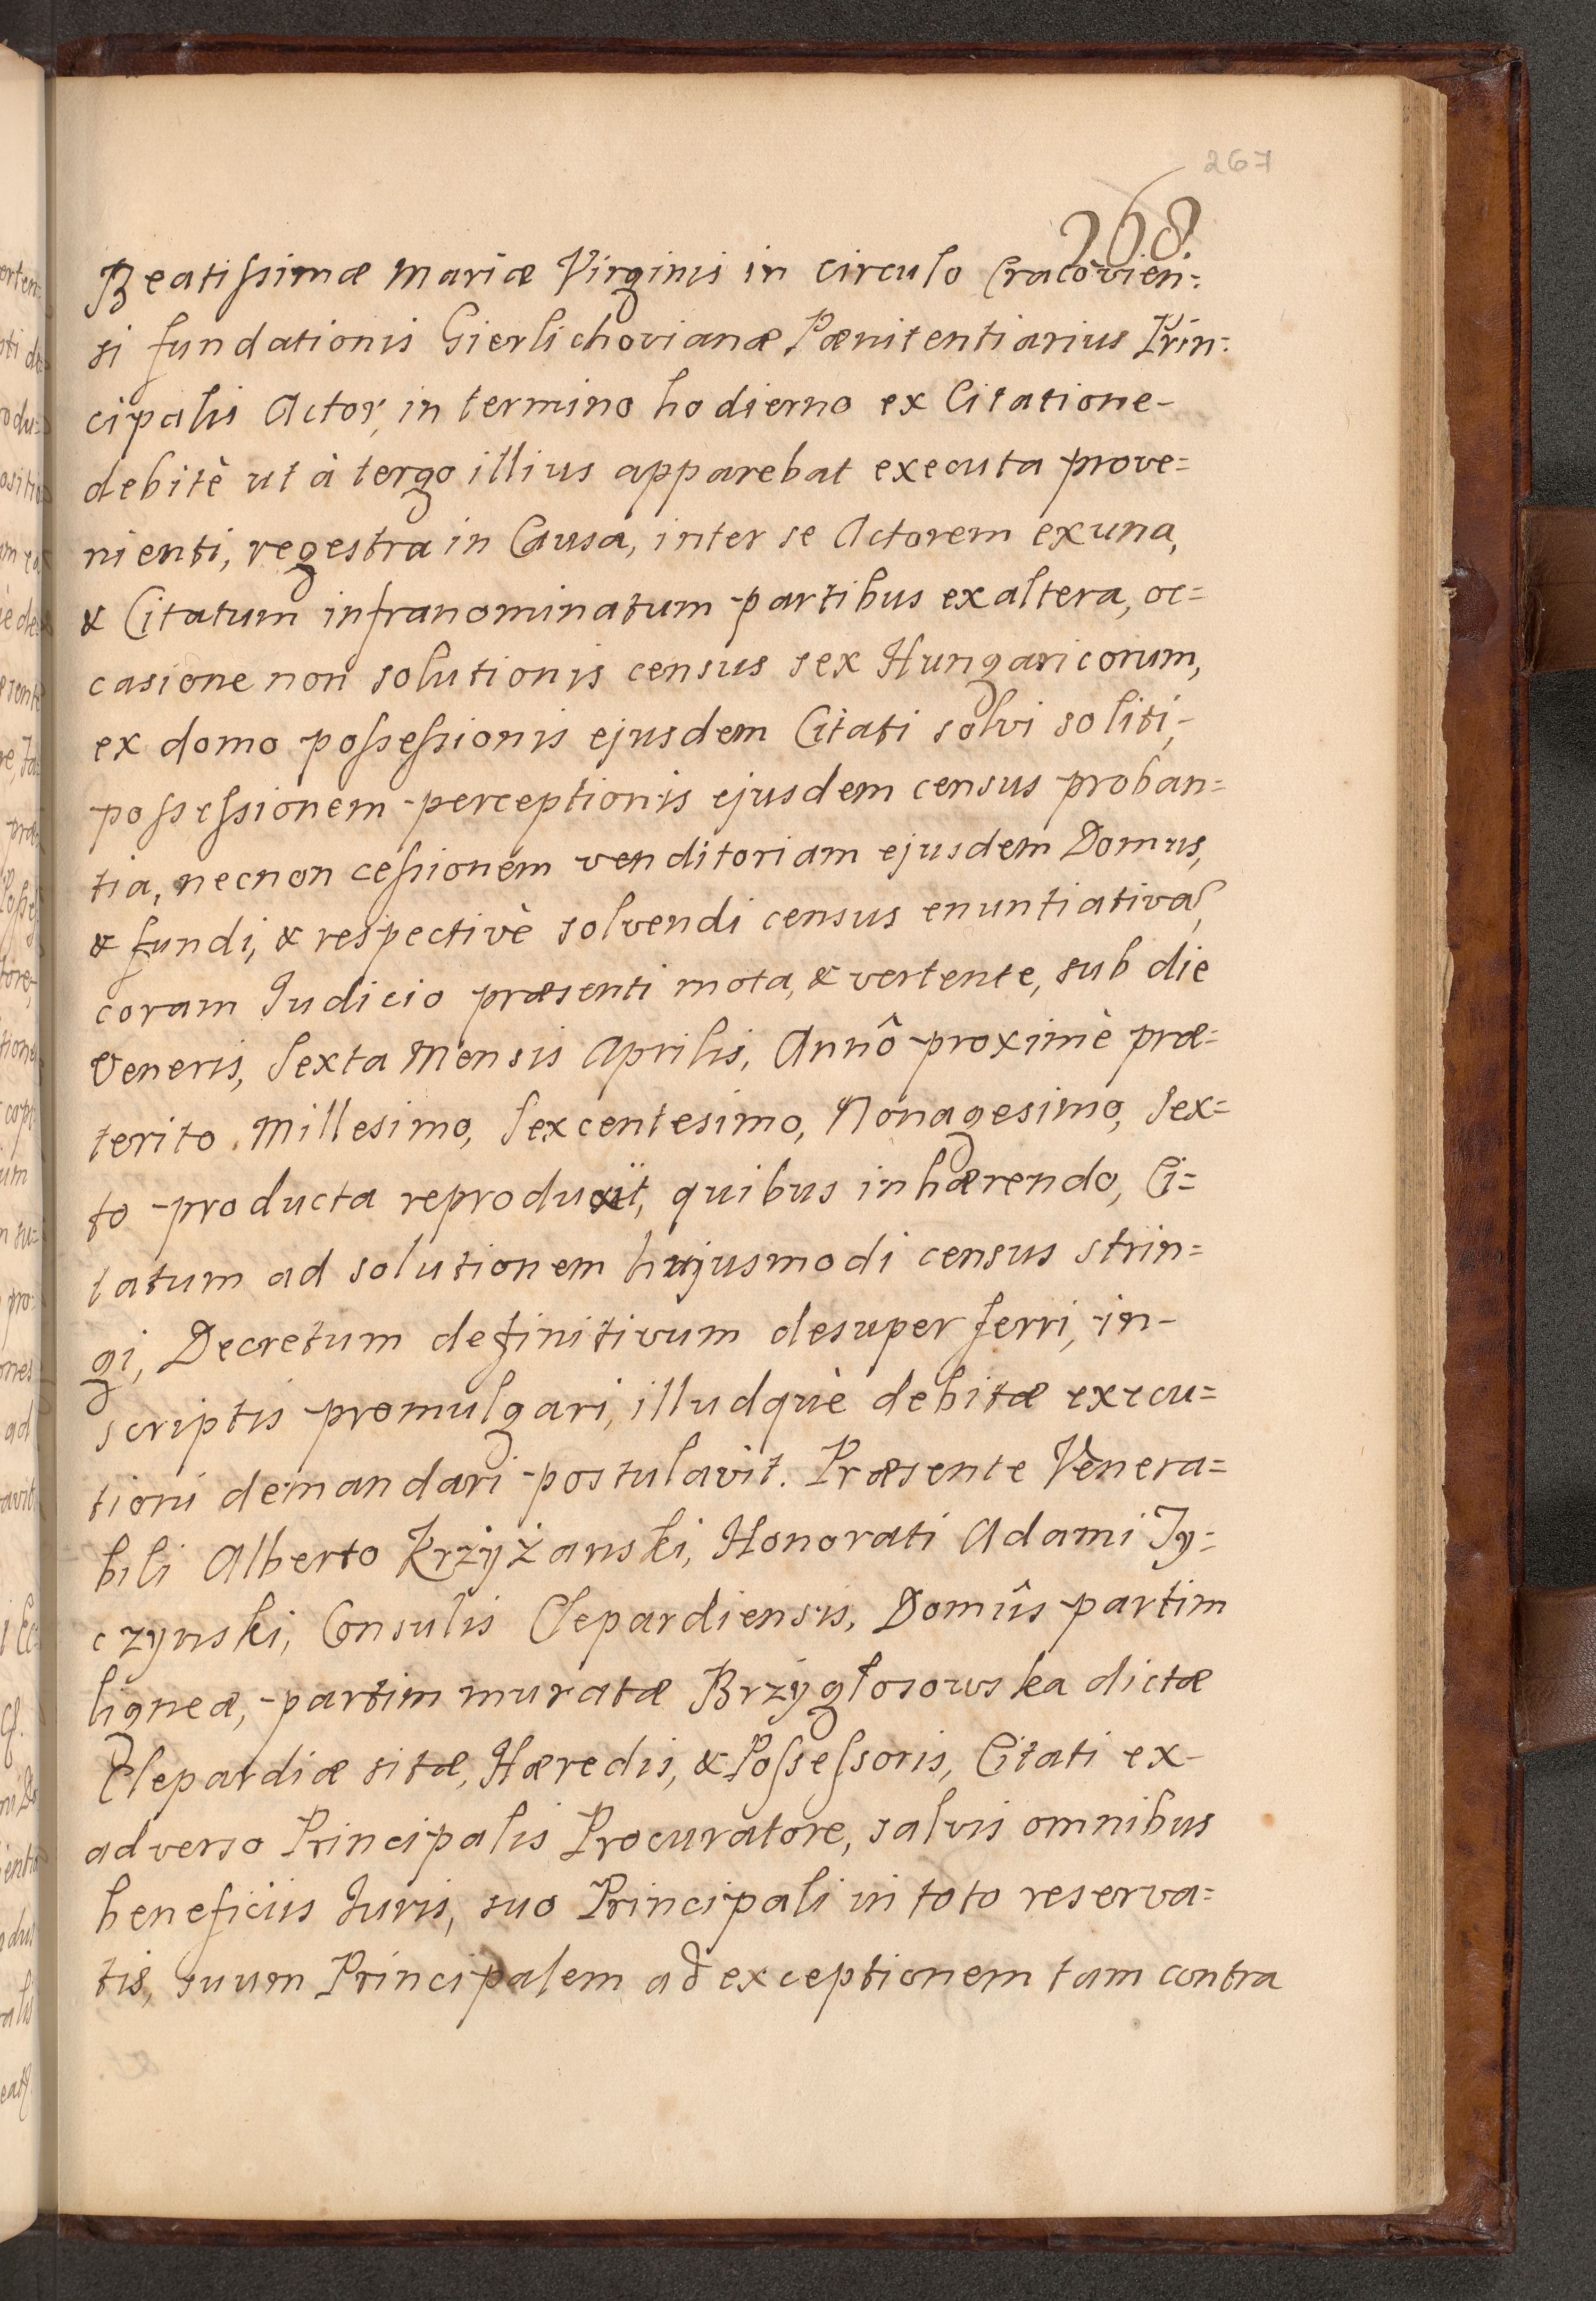 267
268
Beatissimæ Mariæ Virginis in circulo Cracovien=
si fundationis Gierlichovianæ Pænitentiarius Prin=
cipalis Actor, in termino hodierno ex Citatione-
debitè ut à tergo illius apparebat executa prove=
nienti, regestra in Causa, inter se Actorem ex una,
& Citatum infranominatum partibus ex altera, oc=
casione non solutionis census sex Hungaricorum,
ex domo possessionis ejusdem Citati solvi soliti,-
possessionem perceptionis ejusdem census proban=
tia, necnon cessionem venditoriam ejusdem Domus,
& fundi, & respectivè solvendi census enuntiativa,
coram Iudicio præsenti mota, & vertente, sub die
Veneris, Sexta Mensis Aprilis, Annô proximè præ=
terito Millesimo, Sexcentesimo, Nonagesimo, Sex=
to producta reproduxit, quibus inhærendo, Ci=
tatum ad solutionem hujusmodi census strin=
gi, Decretum definitivum desuper ferri, in-
scriptis promulgari, illudquè debitæ execu=
tioni demandari postulavit. Præsente Venera=
bili Alberto Krzyżanski, Honorati Adami Ty=
czynski, Consulis Clepardiensis, Domûs partim
ligneæ, partim muratæ Brzygłosowska dictæ
Clepardiæ sitæ, Hæredis, & Possessoris, Citati ex-
adverso Principalis Procuratore, salvis omnibus
beneficiis Iuris, suo Principali in toto reserva=
tis, suum Principalem ad exceptionem tam contra